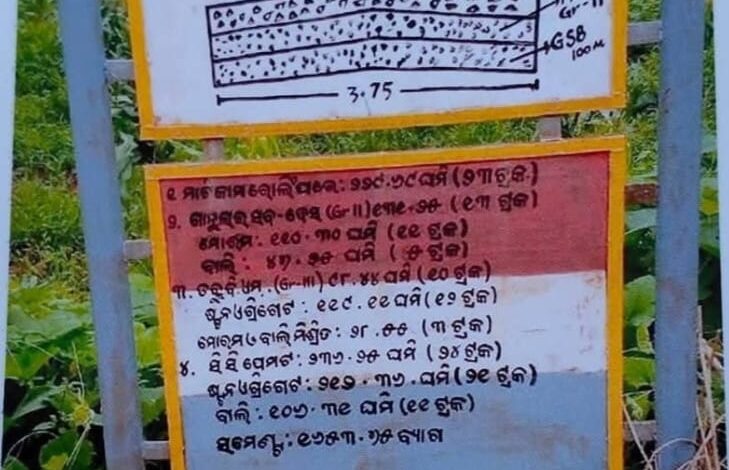 Gr-II
GSB
100 M
3.75
୧. ମାଟି କାମ ରୋଲିଂ ପରେ: ୨୨୯.୬୯ ଘମି (୨୩ ଟ୍ରକ)
୨. ଗ୍ରାନୁଲାର ସବ-ବେସ୍ (Gr II) ୧୩୧.୨୫ (୧୩ ଟ୍ରକ)
ମୋରମ: ୧୧୦.୩୦ ଘମି (୧୧ ଟ୍ରକ)
ବାଲି: ୪୨.୨୫ ଘମି (୫ ଟ୍ରକ)
୩. ଡବ୍ଲୁବିଏମ. (Gr-III) ୯୮.୪୪ ଘମି (୧୦ ଟ୍ରକ)
ଷ୍ଟୋନ ଏଗ୍ରିଗେଟ: ୧୧୯.୧୧ ଘମି (୧୨ ଟ୍ରକ)
ମୋରମ ଓ ବାଲି ମିଶ୍ରିତ: ୨୮.୫୫ (୩ ଟ୍ରକ)
୪. ସି ସି ପେମେଣ୍ଟ: ୨୩୬.୨୫ ଘମି (୨୪ ଟ୍ରକ)
ଷ୍ଟୋନ ଏଗ୍ରିଗେଟ: ୨୧୨.୩୬ ଘମି (୨୧ ଟ୍ରକ)
ବାଲି: ୧୦୬.୩୧ ଘମି (୧୧ ଟ୍ରକ)
ସିମେଣ୍ଟ: ୧୬୫୩.୭୫ ବ୍ୟାଗ